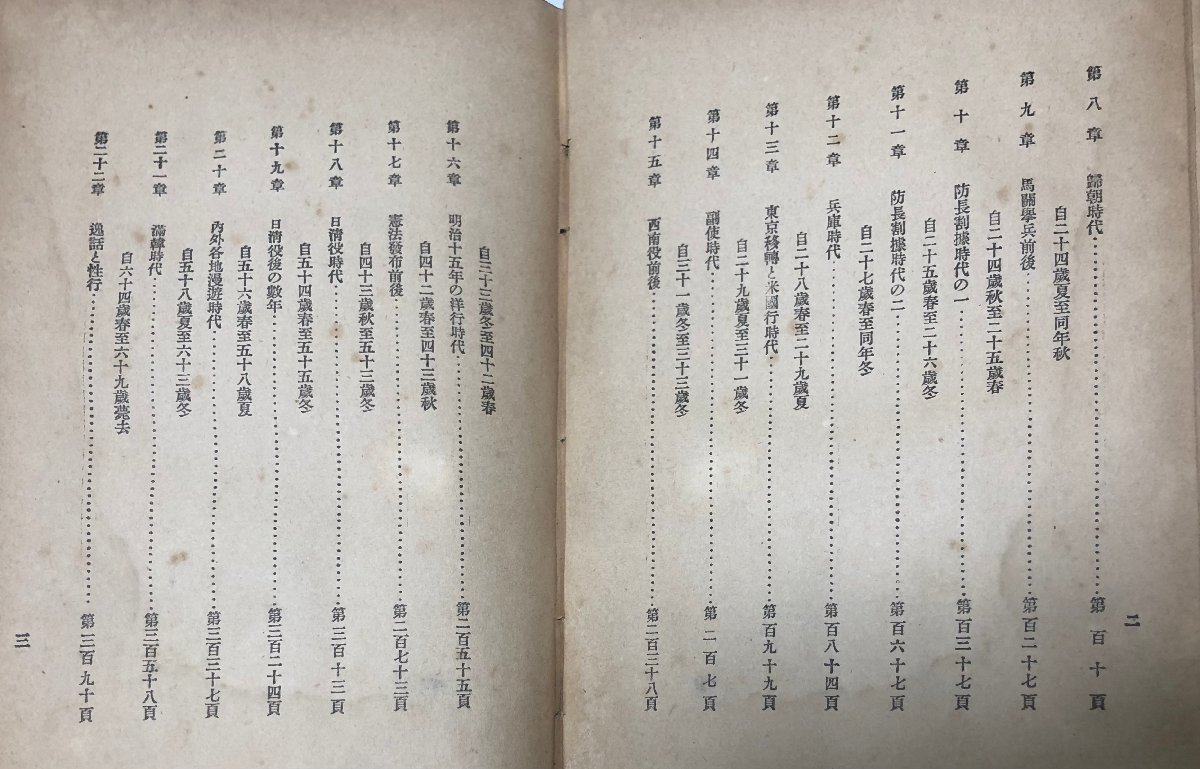 第八章 歸朝時代……第百十頁
自二十四歲夏至同年秋
第九章 馬關擧兵前後……第百二十七頁
自二十四歲秋至二十五歲春
第十章 防長割據時代の一……第百三十七頁
自二十五歲春至二十六歲冬
第十一章 防長割據時代の二……第百六十七頁
自二十七歲春至同年冬
第十二章 兵庫時代……第百八十四頁
自二十八歲春至二十九歲夏
第十三章 東京移轉と米國行時代……第百九十九頁
自二十九歲夏至三十一歲冬
第十四章 副使時代……第二百七頁
自三十一歲冬至三十三歲冬
第十五章 西南役前後……第二百三十八頁
二
自三十三歲冬至四十二歲春
第十六章 明治十五年の洋行時代……第二百五十五頁
自四十二歲春至四十三歲秋
第十七章 憲法發布前後……第二百七十三頁
自四十三歲秋至五十三歲冬
第十八章 日淸役時代……第三百十三頁
自五十四歲春至五十五歲冬
第十九章 日淸役後の數年……第三百二十四頁
自五十六歲春至五十八歲夏
第二十章 內外各地漫遊時代……第三百三十七頁
自五十八歲夏至六十三歲冬
第二十一章 滿韓時代……第三百五十八頁
自六十四歲春至六十九歲薨去
第二十二章 逸話と性行……第三百九十頁
三